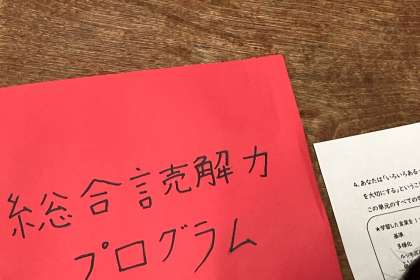 総合読解力
プログラム
4. あなたは「いろいろある
を大切にする」というこ
この単元のすべての
★学習した言葉を
基準
多様化